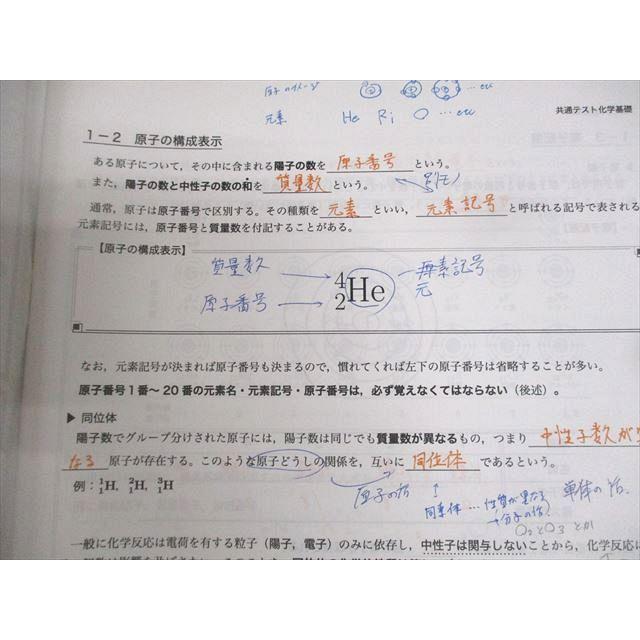 原子のイメージ …etc
元素 He O …etc
共通テスト化学基礎
1－2 原子の構成表示
ある原子について，その中に含まれる陽子の数を 原子番号 という。
また，陽子の数と中性子の数の和を 質量数 という。
通常，原子は原子番号で区別する。その種類を 元素 といい， 元素記号 と呼ばれる記号で表される
元素記号には，原子番号と質量数を付記することがある。
【原子の構成表示】
質量数 4 He 元素記号
原子番号 2
なお，元素記号が決まれば原子番号も決まるので，慣れてくれば左下の原子番号は省略することが多い。
原子番号1番～20番の元素名・元素記号・原子番号は，必ず覚えなくてはならない（後述）。
▶ 同位体
陽子数でグループ分けされた原子には，陽子数は同じでも質量数が異なるもの，つまり 中性子数が
なる 原子が存在する。このような原子どうしの関係を，互いに 同位体 であるという。
例：¹₁H, ²₁H, ³₁H
原子の話 ↑ 単体の話
同素体 … 性質が異なる
→分子の話
O₂とO₃とか
一般に化学反応は電荷を有する粒子（陽子，電子）のみに依存し，中性子は関与しないことから，化学反応に